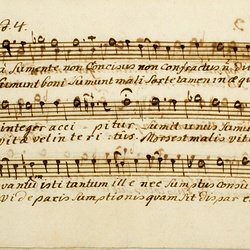 a Sumente non Concisus non confractus n
Sumunt boni Sumunt mali Sorte tamen inæqu
integer acci pitur Sumit unus Sumu
vitæ vel interi tus Mors est malis vit
quantum isti tantum ille nec Sumptus consu
vide paris Sumptionis quam Sit dispar e